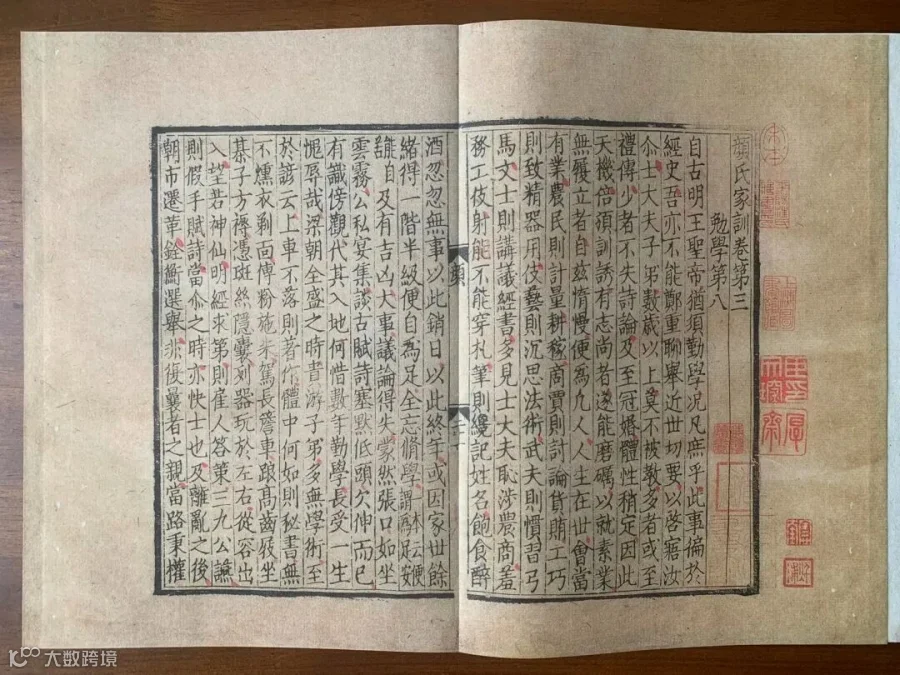 顔氏家訓卷第三
勉學第八
自古明王聖帝猶須勤學況凡庶乎此事徧於
經史吾亦不能鄭重聊舉近世切要以啓寤汝
尒士大夫子弟數歲以上莫不被教多者或至
禮傳少者不失詩論及至冠婚體性稍定因此
天機倍須訓誘有志尚者遂能磨礪以就素業
無履立者自兹惰慢便為凢人人生在世會當
有業農民則計量耕稼商賈則討論貨賄工巧
則致精器用伎藝則沉思法術武夫則慣習弓
馬文士則講議經書多見士大夫恥涉農商羞
務工伎射能不能穿札筆則纔記姓名飽食醉
酒忽忽無事以此銷日以此終年或因家世餘
緒得一階半級便自為足全忘脩學本云便謂為足安
自及有吉凶大事議論得失蒙然張口如坐
雲霧公私宴集談古賦詩塞默低頭欠伸而已
有識傍觀代其入地何惜數年勤學長受一生
愧辱哉梁朝全盛之時貴游子弟多無學術至
於諺云上車不落則著作體中何如則秘書無
不燻衣剃面傅粉施朱駕長簷車跟高齒屐坐
棊子方褥憑斑絲隱囊列器玩於左右從容出
入望若神仙明經求第則雇人答策三九公讌
則假手賦詩當尒之時亦快士也及離亂之後
朝市遷革銓衡選舉非復曩者之親當路秉權
顔
大数跨境